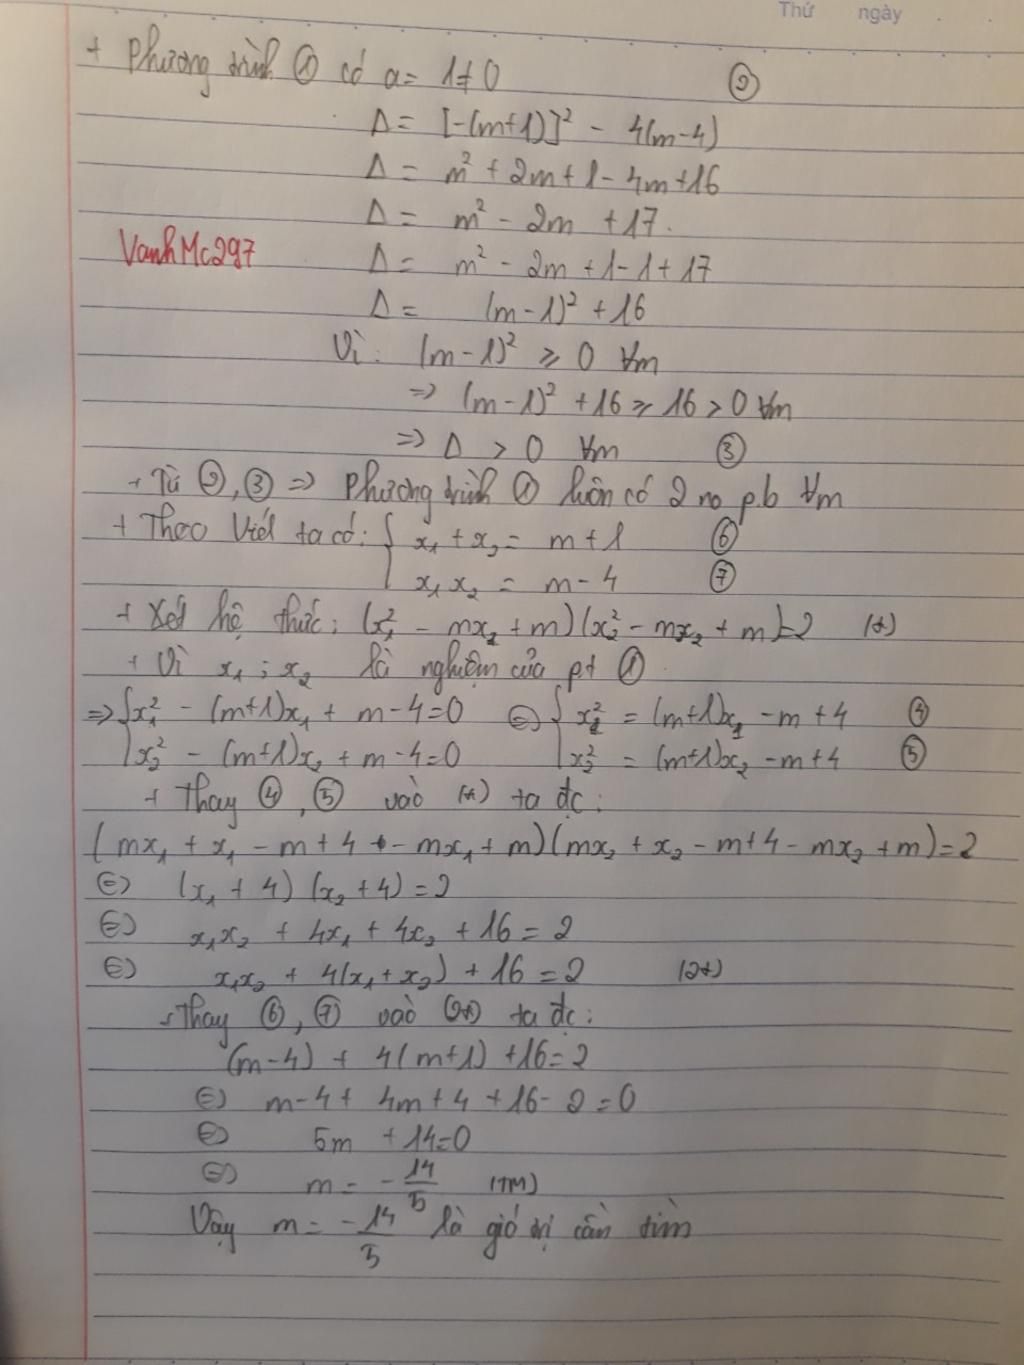 Thứ ngày
+ Phương trình ① có a = 1 ≠ 0 ②
Δ = [-(m+1)]² - 4(m-4)
Δ = m² + 2m + 1 - 4m + 16
Δ = m² - 2m + 17.
VanhMc297
Δ = m² - 2m + 1 - 1 + 17
Δ = (m-1)² + 16
Vì: (m-1)² ≥ 0 ∀m
=> (m-1)² + 16 ≥ 16 > 0 ∀m
=> Δ > 0 ∀m ③
+ Từ ②, ③ => Phương trình ① luôn có 2 no p.b ∀m
+ Theo Viét ta có: { x₁ + x₂ = m + 1 ⑥
x₁x₂ = m - 4 ⑦
+ Xét hệ thức: (x₁² - mx₂ + m)(x₂² - mx₂ + m) = 2 (*)
+ Vì x₁ ; x₂ là nghiệm của pt ①
=> { x₁² - (m+1)x₁ + m - 4 = 0 <=> { x₁² = (m+1)x₁ - m + 4 ④
x₂² - (m+1)x₂ + m - 4 = 0 x₂² = (m+1)x₂ - m + 4 ⑤
+ Thay ④, ⑤ vào (*) ta đc:
(mx₁ + x₁ - m + 4 - mx₁ + m)(mx₂ + x₂ - m + 4 - mx₂ + m) = 2
<=> (x₁ + 4)(x₂ + 4) = 2
<=> x₁x₂ + 4x₁ + 4x₂ + 16 = 2
<=> x₁x₂ + 4(x₁ + x₂) + 16 = 2 (2*)
+ Thay ⑥, ⑦ vào (2*) ta đc:
(m-4) + 4(m+1) + 16 = 2
<=> m - 4 + 4m + 4 + 16 - 2 = 0
<=> 5m + 14 = 0
<=> m = -14/5 (TM)
Vậy m = -14/5 là giá trị cần tìm